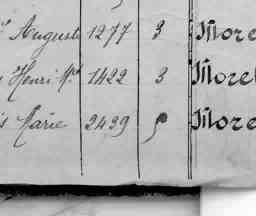 Auguste 1277 3 More
Henri Md 1422 3 Morel
Marie 2439 5 More